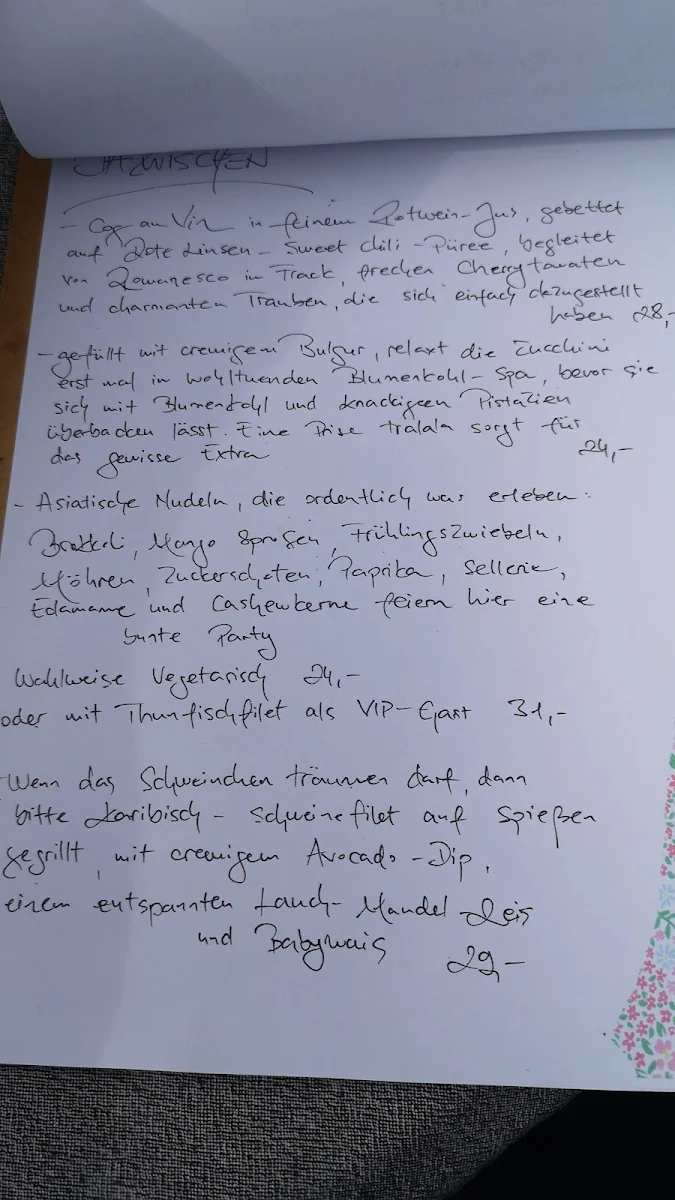 DAZWISCHEN
- Coq au Vin in feinem Rotwein-Jus, gebettet
auf Rote Linsen - Sweet Chili - Püree, begleitet
von Romanesco in Frack, frechen Cherrytomaten
und charmanten Trauben, die sich einfach dazugestellt
haben 28,-
- gefüllt mit cremigem Bulgur, relaxt die Zucchini
erst mal in wohltuenden Blumenkohl-Spa, bevor sie
sich mit Blumenkohl und knackigen Pistazien
überbacken lässt. Eine Prise tralala sorgt für
das gewisse Extra 24,-
- Asiatische Nudeln, die ordentlich was erleben:
Brokkoli, Mango Sprossen, Frühlingszwiebeln,
Möhren, Zuckerschoten, Paprika, Sellerie,
Edamame und Cashewkerne feiern hier eine
bunte Party
Wahlweise Vegetarisch 24,-
oder mit Thunfischfilet als VIP-Gast 31,-
- Wenn das Schweinchen träumen darf, dann
bitte karibisch - Schweinefilet auf Spießen
gegrillt, mit cremigem Avocado-Dip,
einem entspannten Lauch-Mandel Reis
und Babymais 29,-